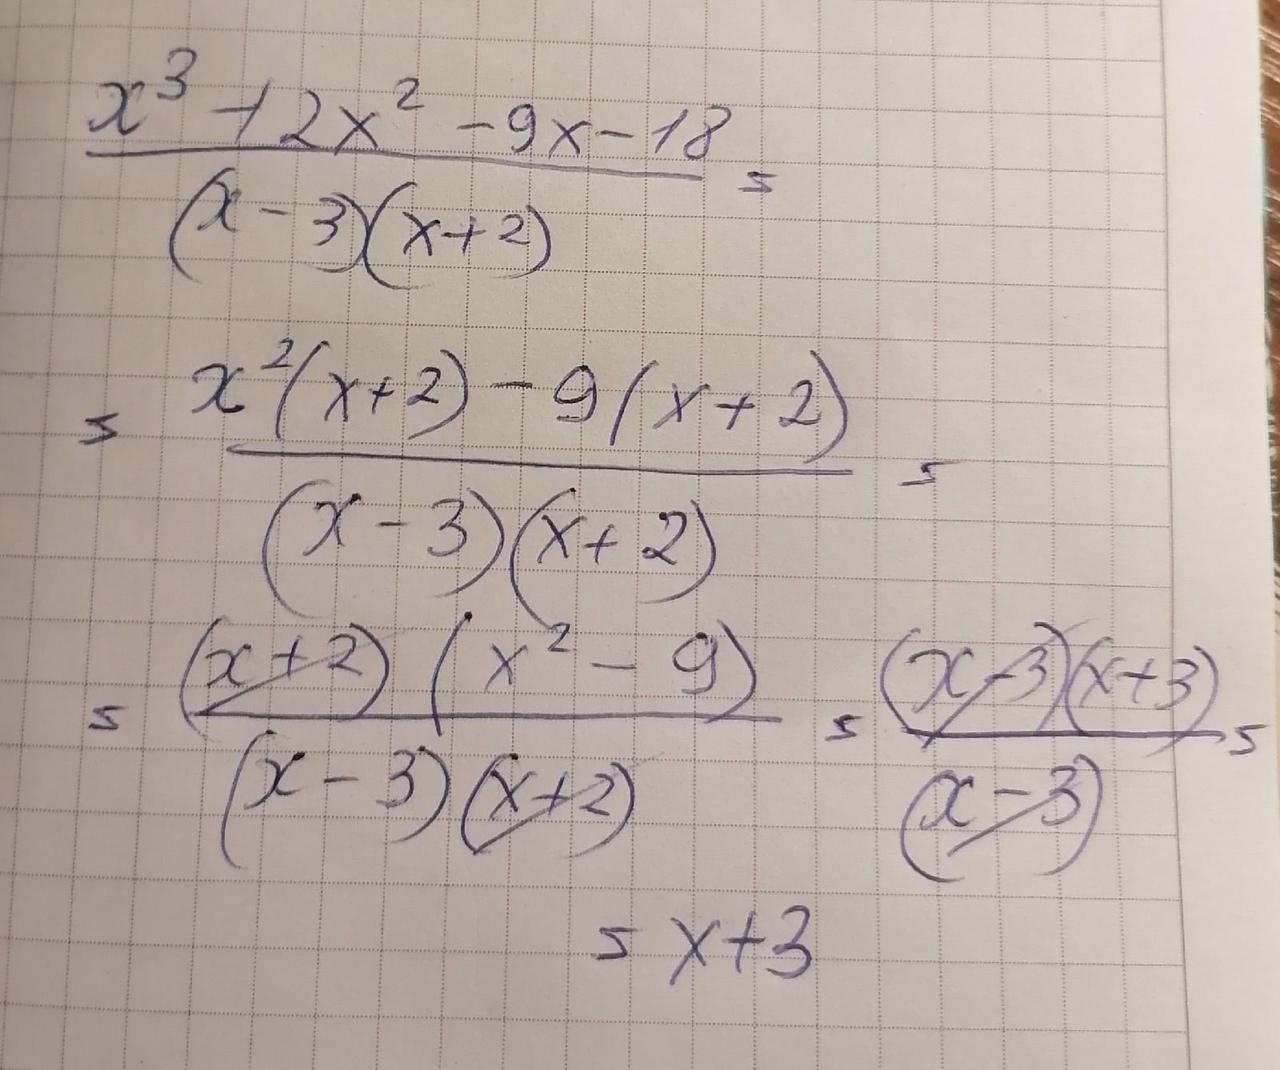 x³ + 2x² - 9x - 18 =
(x - 3)(x + 2)
= x²(x + 2) - 9(x + 2) =
(x - 3)(x + 2)
= (x + 2)(x² - 9) = (x - 3)(x + 3) =
(x - 3)(x + 2) (x - 3)
= x + 3